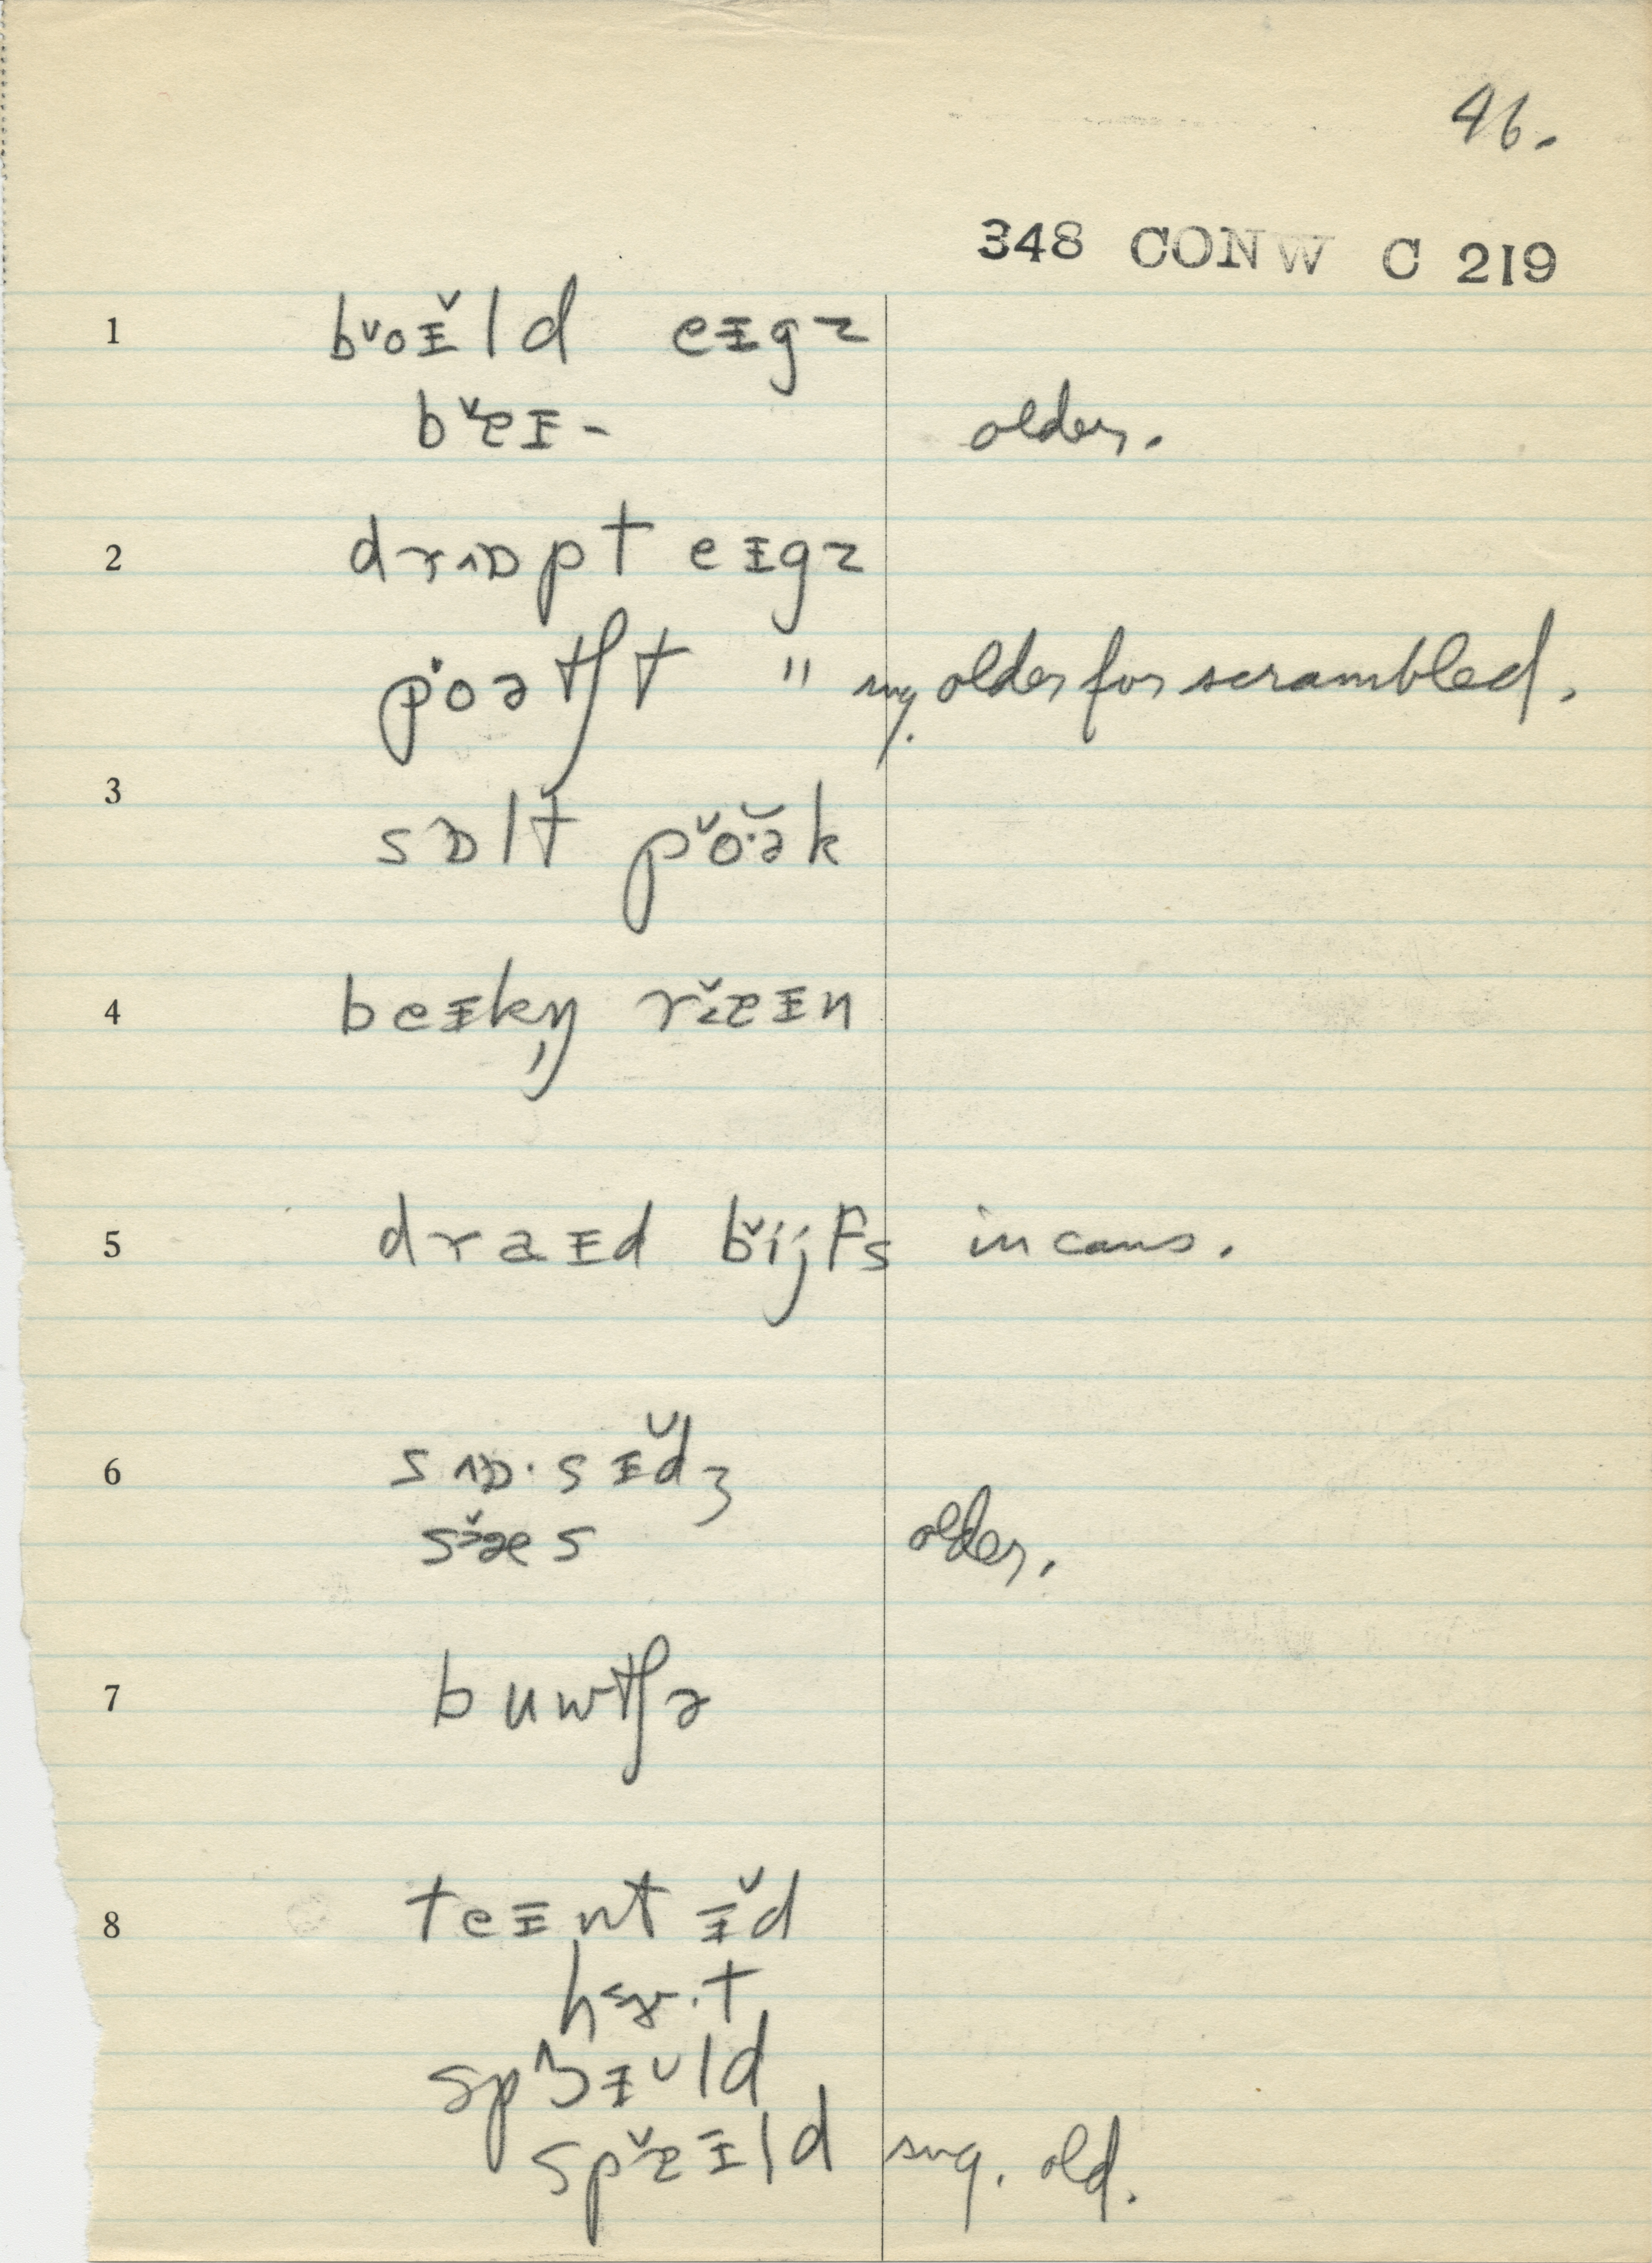 46.
348 CONW C 219
1 bˇoᵻ̌ld eᵻgz
bˇɐᵻ- older.
2 drɒpt eᵻgz
poətʃt " sug. older for scrambled.
3 sɒlt pˇo·ək
4 beᵻkn̩ rˇɐᵻn
5 draᵻd bˇijfs in cans.
6 sɒ·sᵻ̌dʒ
sˇæs older.
7 buwtʃə
8 teᵻntᵻ̌d
hɜ·t
spɔᵻ̌ld
spˇɐᵻld sug. old.